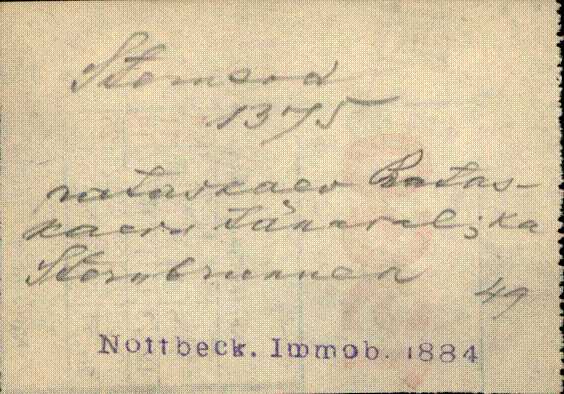 Sternsod
1375
rataskaev Ratas-
kaevu tänaval; ka
Sternbrunnen
49
Nottbeck. Immob. 1884